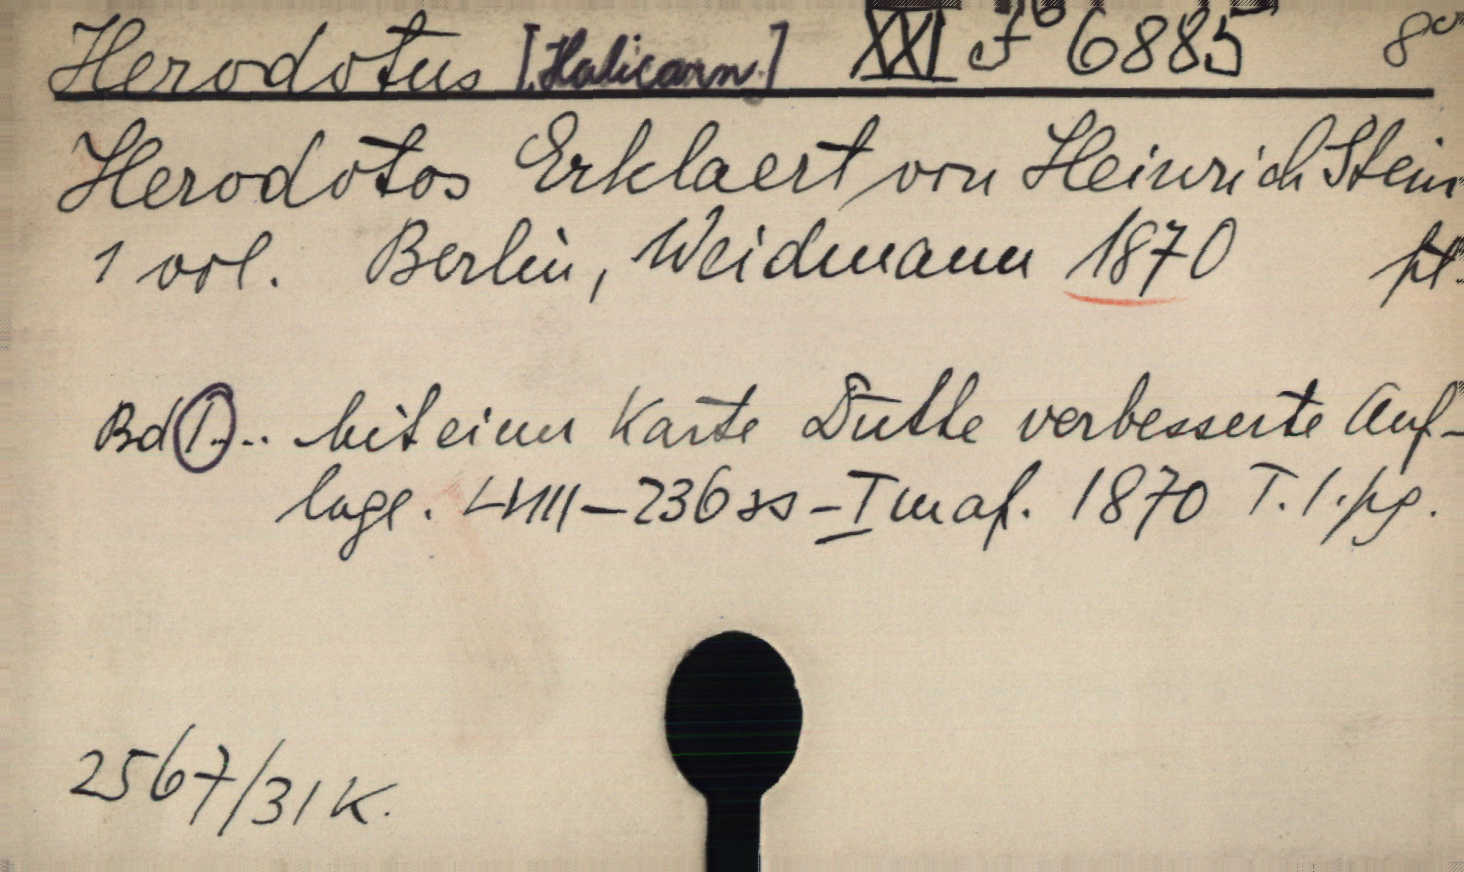 Herodotus [Halicarn.] XXI J 6885 8°
Herodotos Erklaert von Heinrich Stein
1 vol. Berlin, Weidmann 1870 pt.
Bd I... Mit einer Karte Dritte verbesserte Auf-
lage. LVIII-236 ss - I map. 1870 T.1.pg.
2567/31 K.